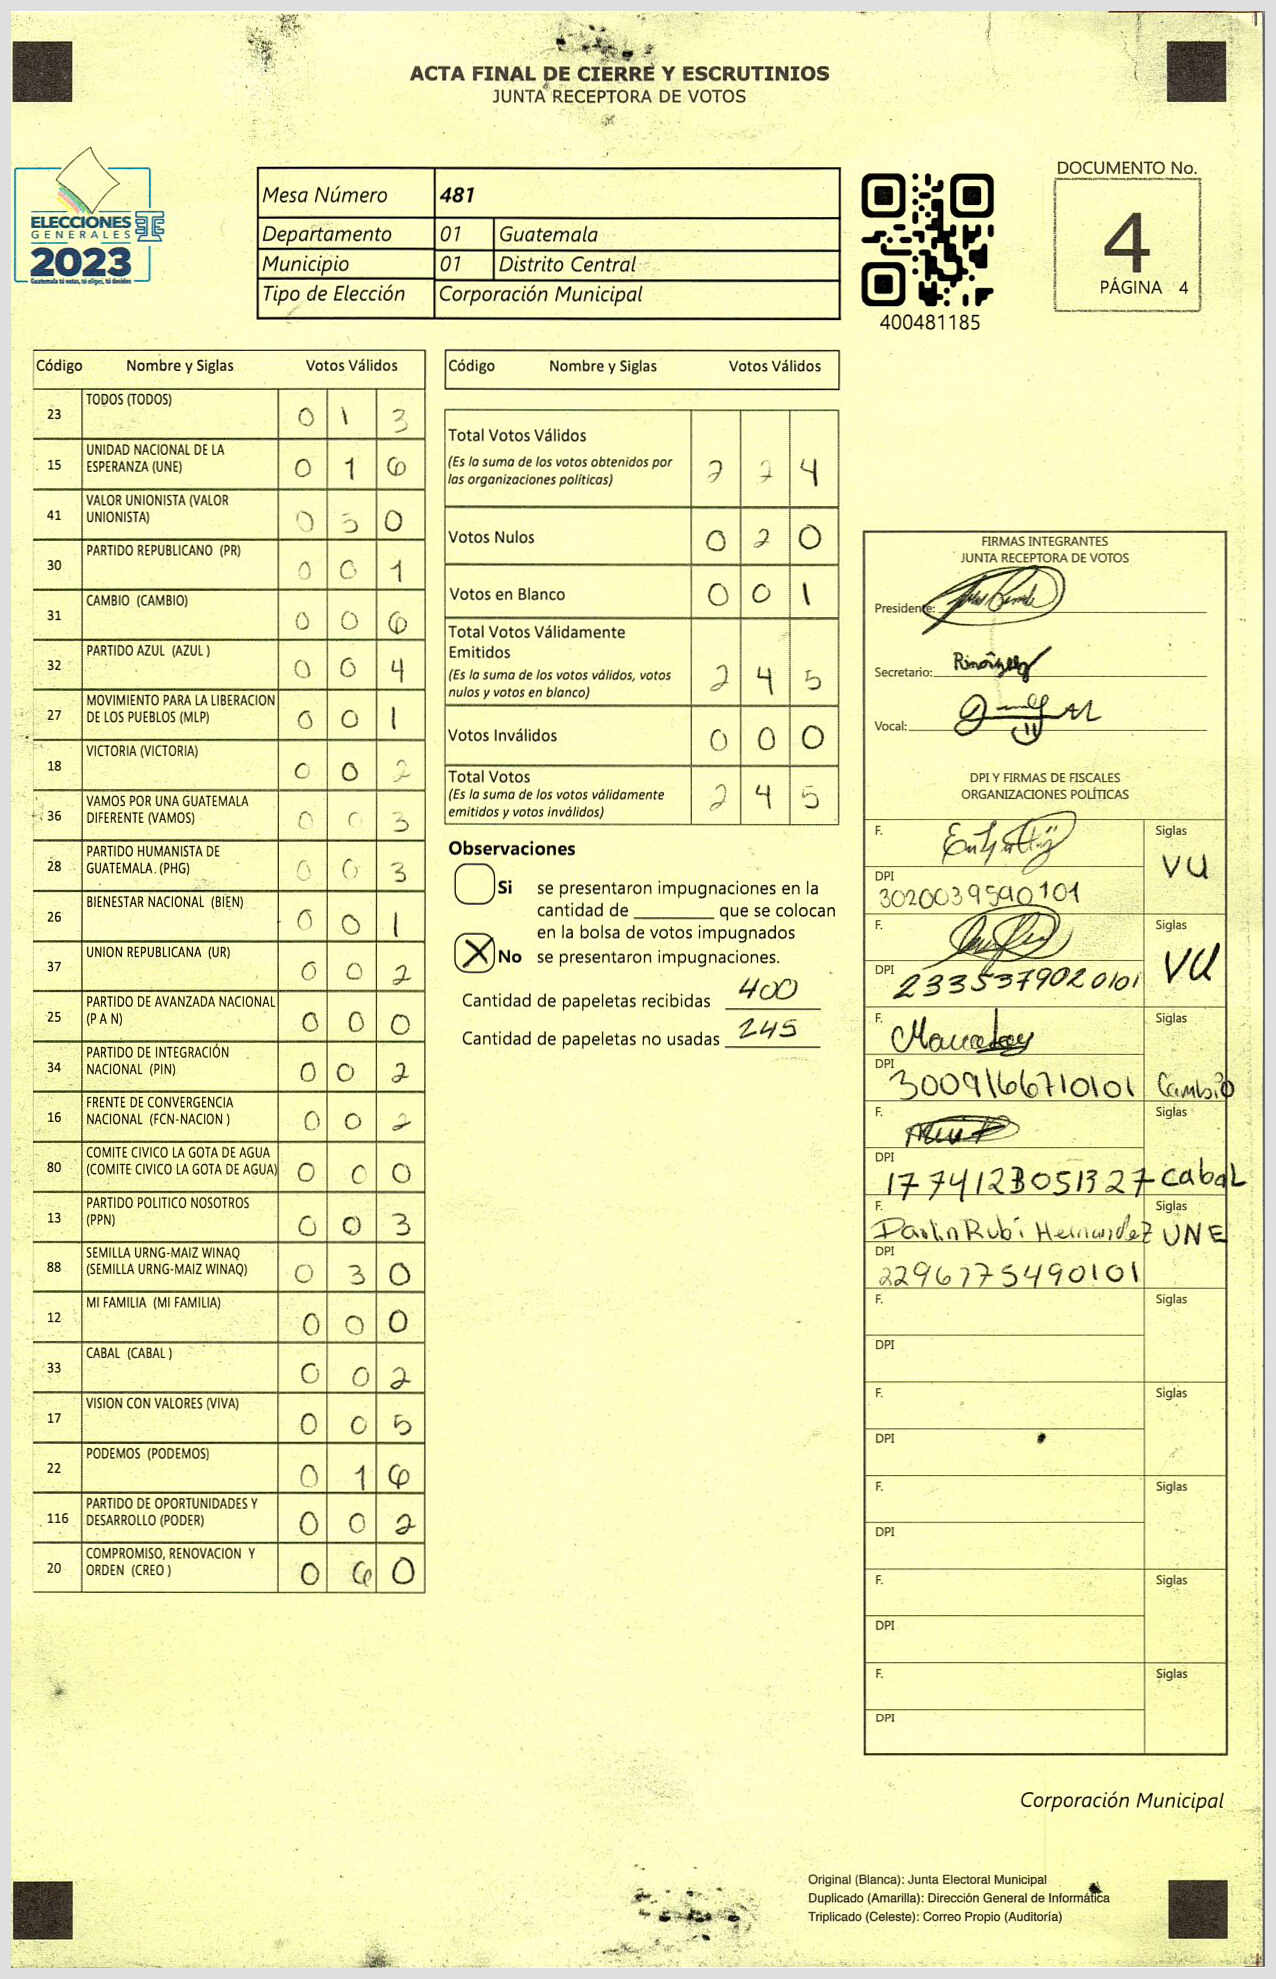 ACTA FINAL DE CIERRE Y ESCRUTINIOS
JUNTA RECEPTORA DE VOTOS
ELECCIONES
GENERALES
2023
Guatemala tú votas, tú eliges, tú decides
Mesa Número 481
Departamento 01 Guatemala
Municipio 01 Distrito Central
Tipo de Elección Corporación Municipal
400481185
DOCUMENTO No.
4
PÁGINA 4
Código Nombre y Siglas Votos Válidos
23 TODOS (TODOS) 0 1 3
15 UNIDAD NACIONAL DE LA
ESPERANZA (UNE) 0 1 6
41 VALOR UNIONISTA (VALOR
UNIONISTA) 0 5 0
30 PARTIDO REPUBLICANO (PR) 0 0 1
31 CAMBIO (CAMBIO) 0 0 6
32 PARTIDO AZUL (AZUL ) 0 0 4
27 MOVIMIENTO PARA LA LIBERACION
DE LOS PUEBLOS (MLP) 0 0 1
18 VICTORIA (VICTORIA) 0 0 2
36 VAMOS POR UNA GUATEMALA
DIFERENTE (VAMOS) 0 0 3
28 PARTIDO HUMANISTA DE
GUATEMALA. (PHG) 0 0 3
26 BIENESTAR NACIONAL (BIEN) 0 0 1
37 UNION REPUBLICANA (UR) 0 0 2
25 PARTIDO DE AVANZADA NACIONAL
(P A N) 0 0 0
34 PARTIDO DE INTEGRACIÓN
NACIONAL (PIN) 0 0 2
16 FRENTE DE CONVERGENCIA
NACIONAL (FCN-NACION ) 0 0 2
80 COMITE CIVICO LA GOTA DE AGUA
(COMITE CIVICO LA GOTA DE AGUA) 0 0 0
13 PARTIDO POLITICO NOSOTROS
(PPN) 0 0 3
88 SEMILLA URNG-MAIZ WINAQ
(SEMILLA URNG-MAIZ WINAQ) 0 3 0
12 MI FAMILIA (MI FAMILIA) 0 0 0
33 CABAL (CABAL ) 0 0 2
17 VISION CON VALORES (VIVA) 0 0 5
22 PODEMOS (PODEMOS) 0 1 6
116 PARTIDO DE OPORTUNIDADES Y
DESARROLLO (PODER) 0 0 2
20 COMPROMISO, RENOVACION Y
ORDEN (CREO ) 0 6 0
Código Nombre y Siglas Votos Válidos
Total Votos Válidos
(Es la suma de los votos obtenidos por
las organizaciones políticas) 2 2 4
Votos Nulos 0 2 0
Votos en Blanco 0 0 1
Total Votos Válidamente
Emitidos
(Es la suma de los votos válidos, votos
nulos y votos en blanco) 2 4 5
Votos Inválidos 0 0 0
Total Votos
(Es la suma de los votos válidamente
emitidos y votos inválidos) 2 4 5
Observaciones
Si se presentaron impugnaciones en la
cantidad de ________ que se colocan
en la bolsa de votos impugnados
X No se presentaron impugnaciones.
Cantidad de papeletas recibidas 400
Cantidad de papeletas no usadas 245
FIRMAS INTEGRANTES
JUNTA RECEPTORA DE VOTOS
Presidente:
Secretario:
Vocal:
DPI Y FIRMAS DE FISCALES
ORGANIZACIONES POLÍTICAS
F. Siglas
VU
DPI
3020039590101
F. Siglas
VU
DPI
2335379020101
F. Siglas
DPI
3009166710101 Cambio
F. Siglas
DPI
1774123051327 cabal
F. Siglas
Rubi Hernandez UNE
DPI
2296775490101
F. Siglas
DPI
F. Siglas
DPI
F. Siglas
DPI
F. Siglas
DPI
F. Siglas
DPI
Corporación Municipal
Original (Blanca): Junta Electoral Municipal
Duplicado (Amarilla): Dirección General de Informática
Triplicado (Celeste): Correo Propio (Auditoría)